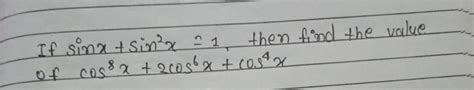 If sinx + sin²x = 1, then find the value
of cos⁸x + 2cos⁶x + cos⁴x